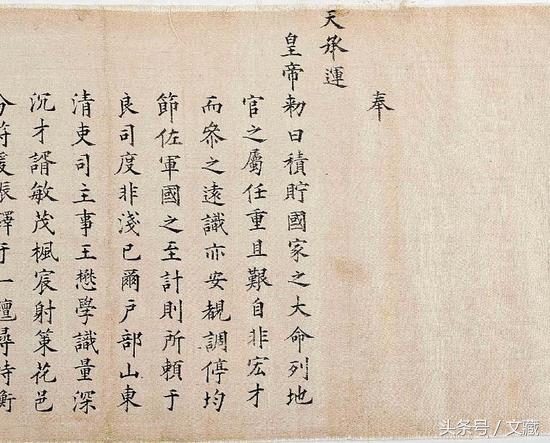 奉
天承運
皇帝勑曰積貯國家之大命列地
官之屬任重且艱自非宏才
而叅之遠識亦安覩調停均
節佐軍國之至計則所頼于
良司度非淺已爾戶部山東
清吏司主事王懋學識量深
沉才諝敏茂楓宸射策花邑
分符爰振鐸于一尋持衡
头条号／文藏